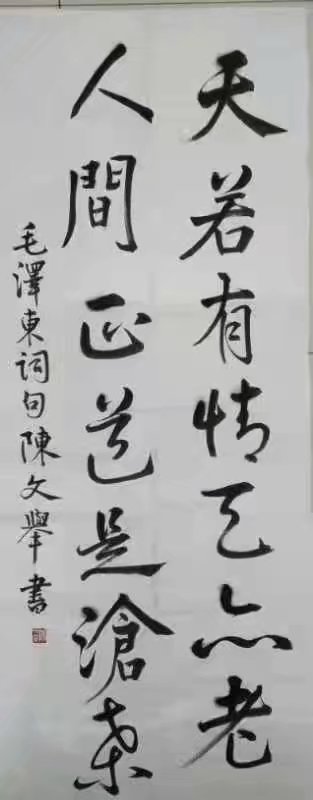 天若有情天亦老
人間正道是滄桑
毛澤東词句陳文舉書